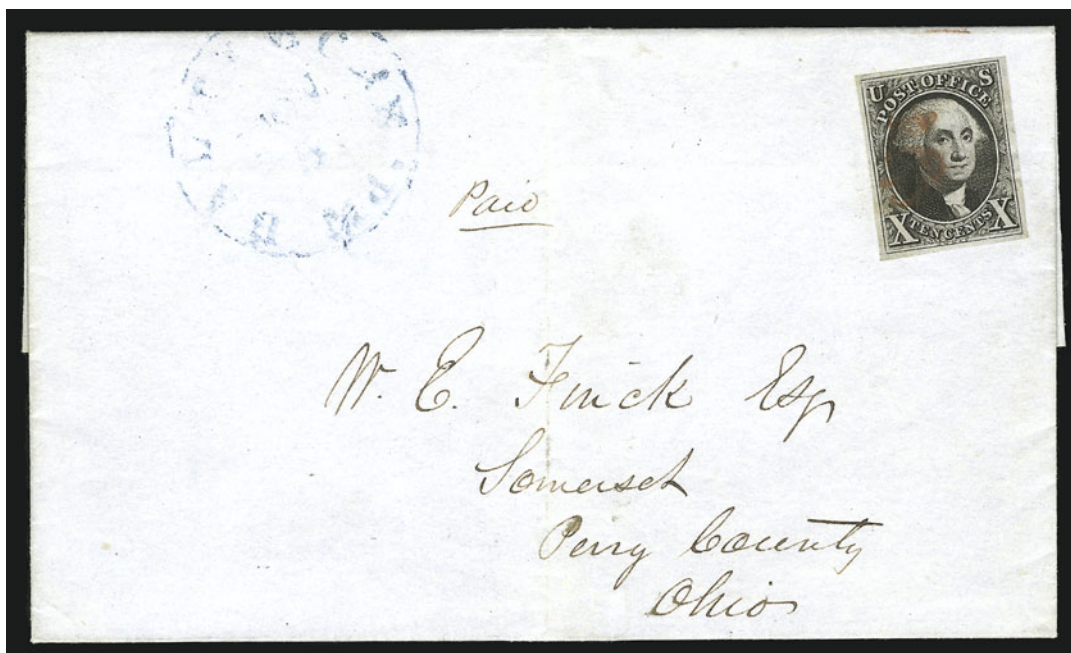 U S
POST OFFICE
X TEN CENTS X
Paid
W. E. Finck Esq
Somerset
Perry County
Ohio